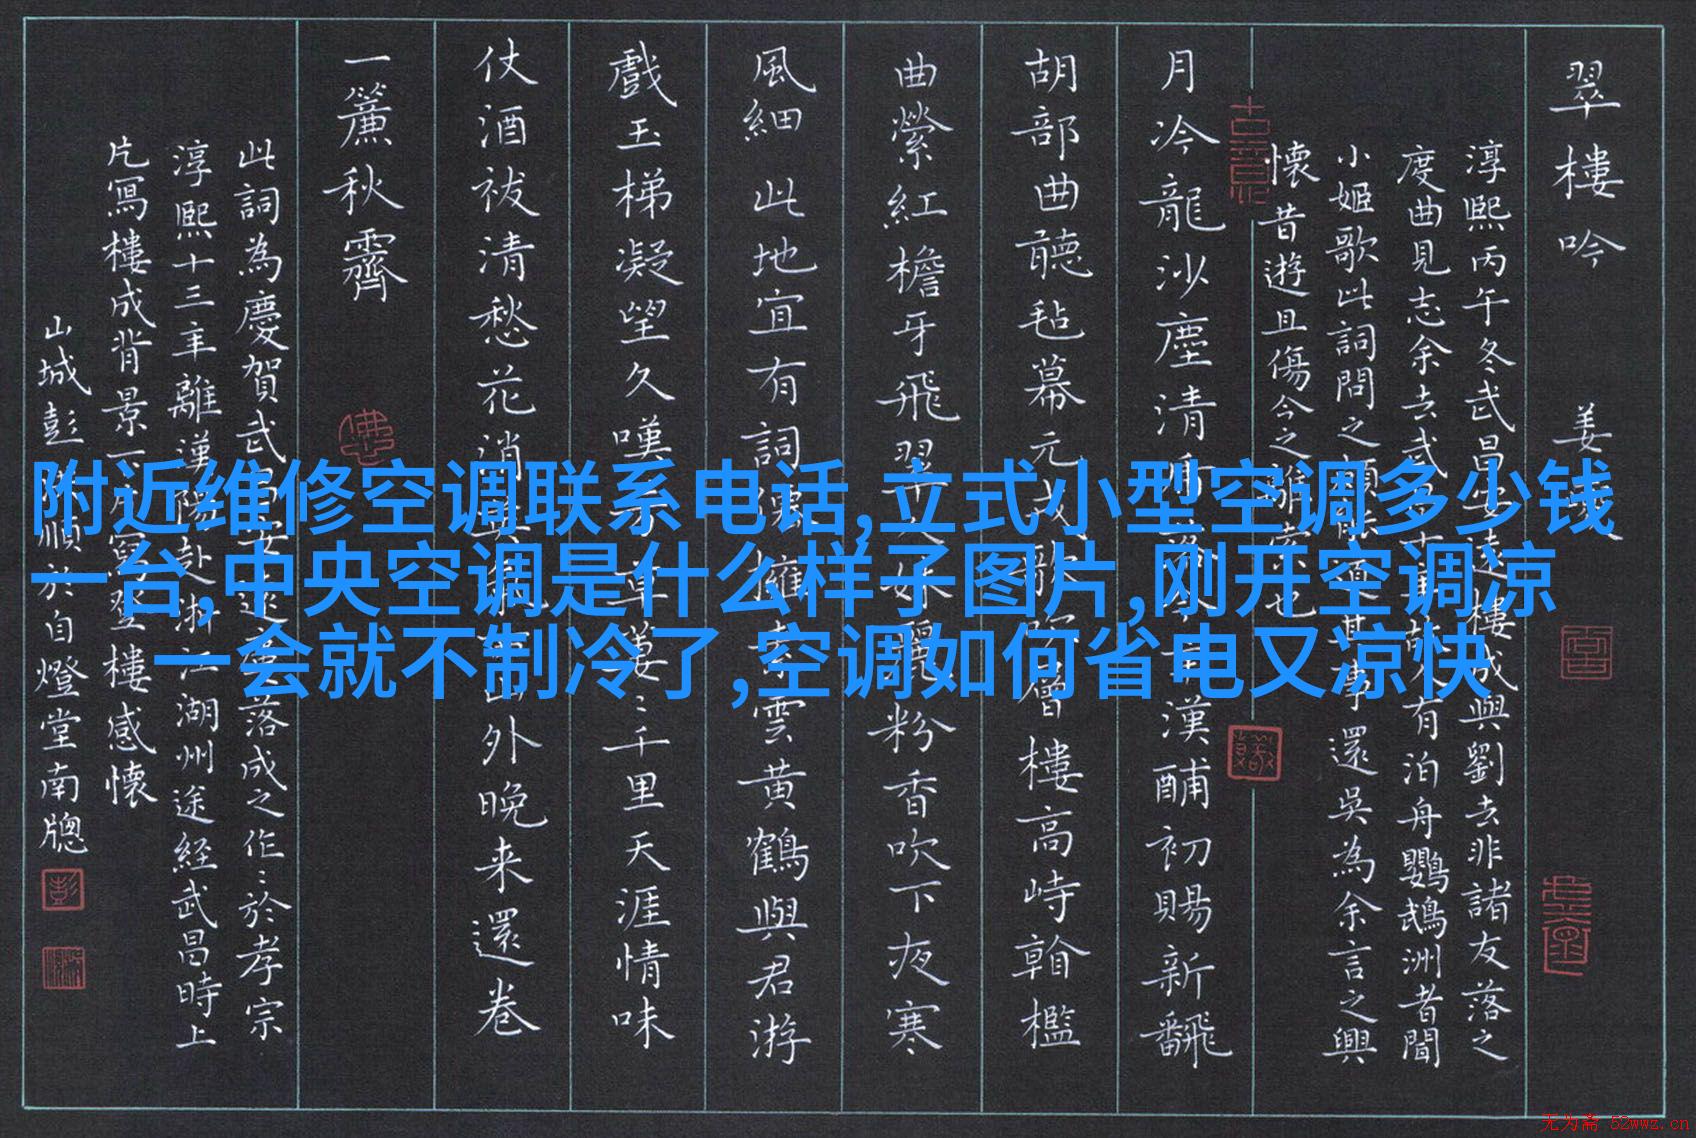 翠樓吟 姜
淳熙丙午冬武昌遠樓成與劉去非諸友落之
度曲見志余去武有泊舟鸚鵡洲者聞
小姬歌此詞問之頗能道其事還吳為余言之興
懷昔遊且傷今之離索也
月冷龍沙塵清虎落今年漢酺初賜新翻
胡部曲聽毡幕元戎歌吹層樓高峙檻
曲縈紅檐牙飛翠人姝麗粉香吹下夜寒
風細 此地宜有詞仙擁素雲黃鶴與君游
戲玉梯凝望久嘆芳草萋々千里天涯情味
仗酒祓清愁花消英氣西山外晚来還卷
一簾秋霽
此詞為慶賀武昌安遠樓落成之作於孝宗
淳熙十三年離漢陽赴浙江湖州途經武昌時上
片寫樓成背景下片寫登樓感懷
山城彭順於自燈堂南牕
附近维修空调联系电话,立式小型空调多少钱
一台,中央空调是什么样子图片,刚开空调凉
一会就不制冷了,空调如何省电又凉快
无为斋 52wwz.cn